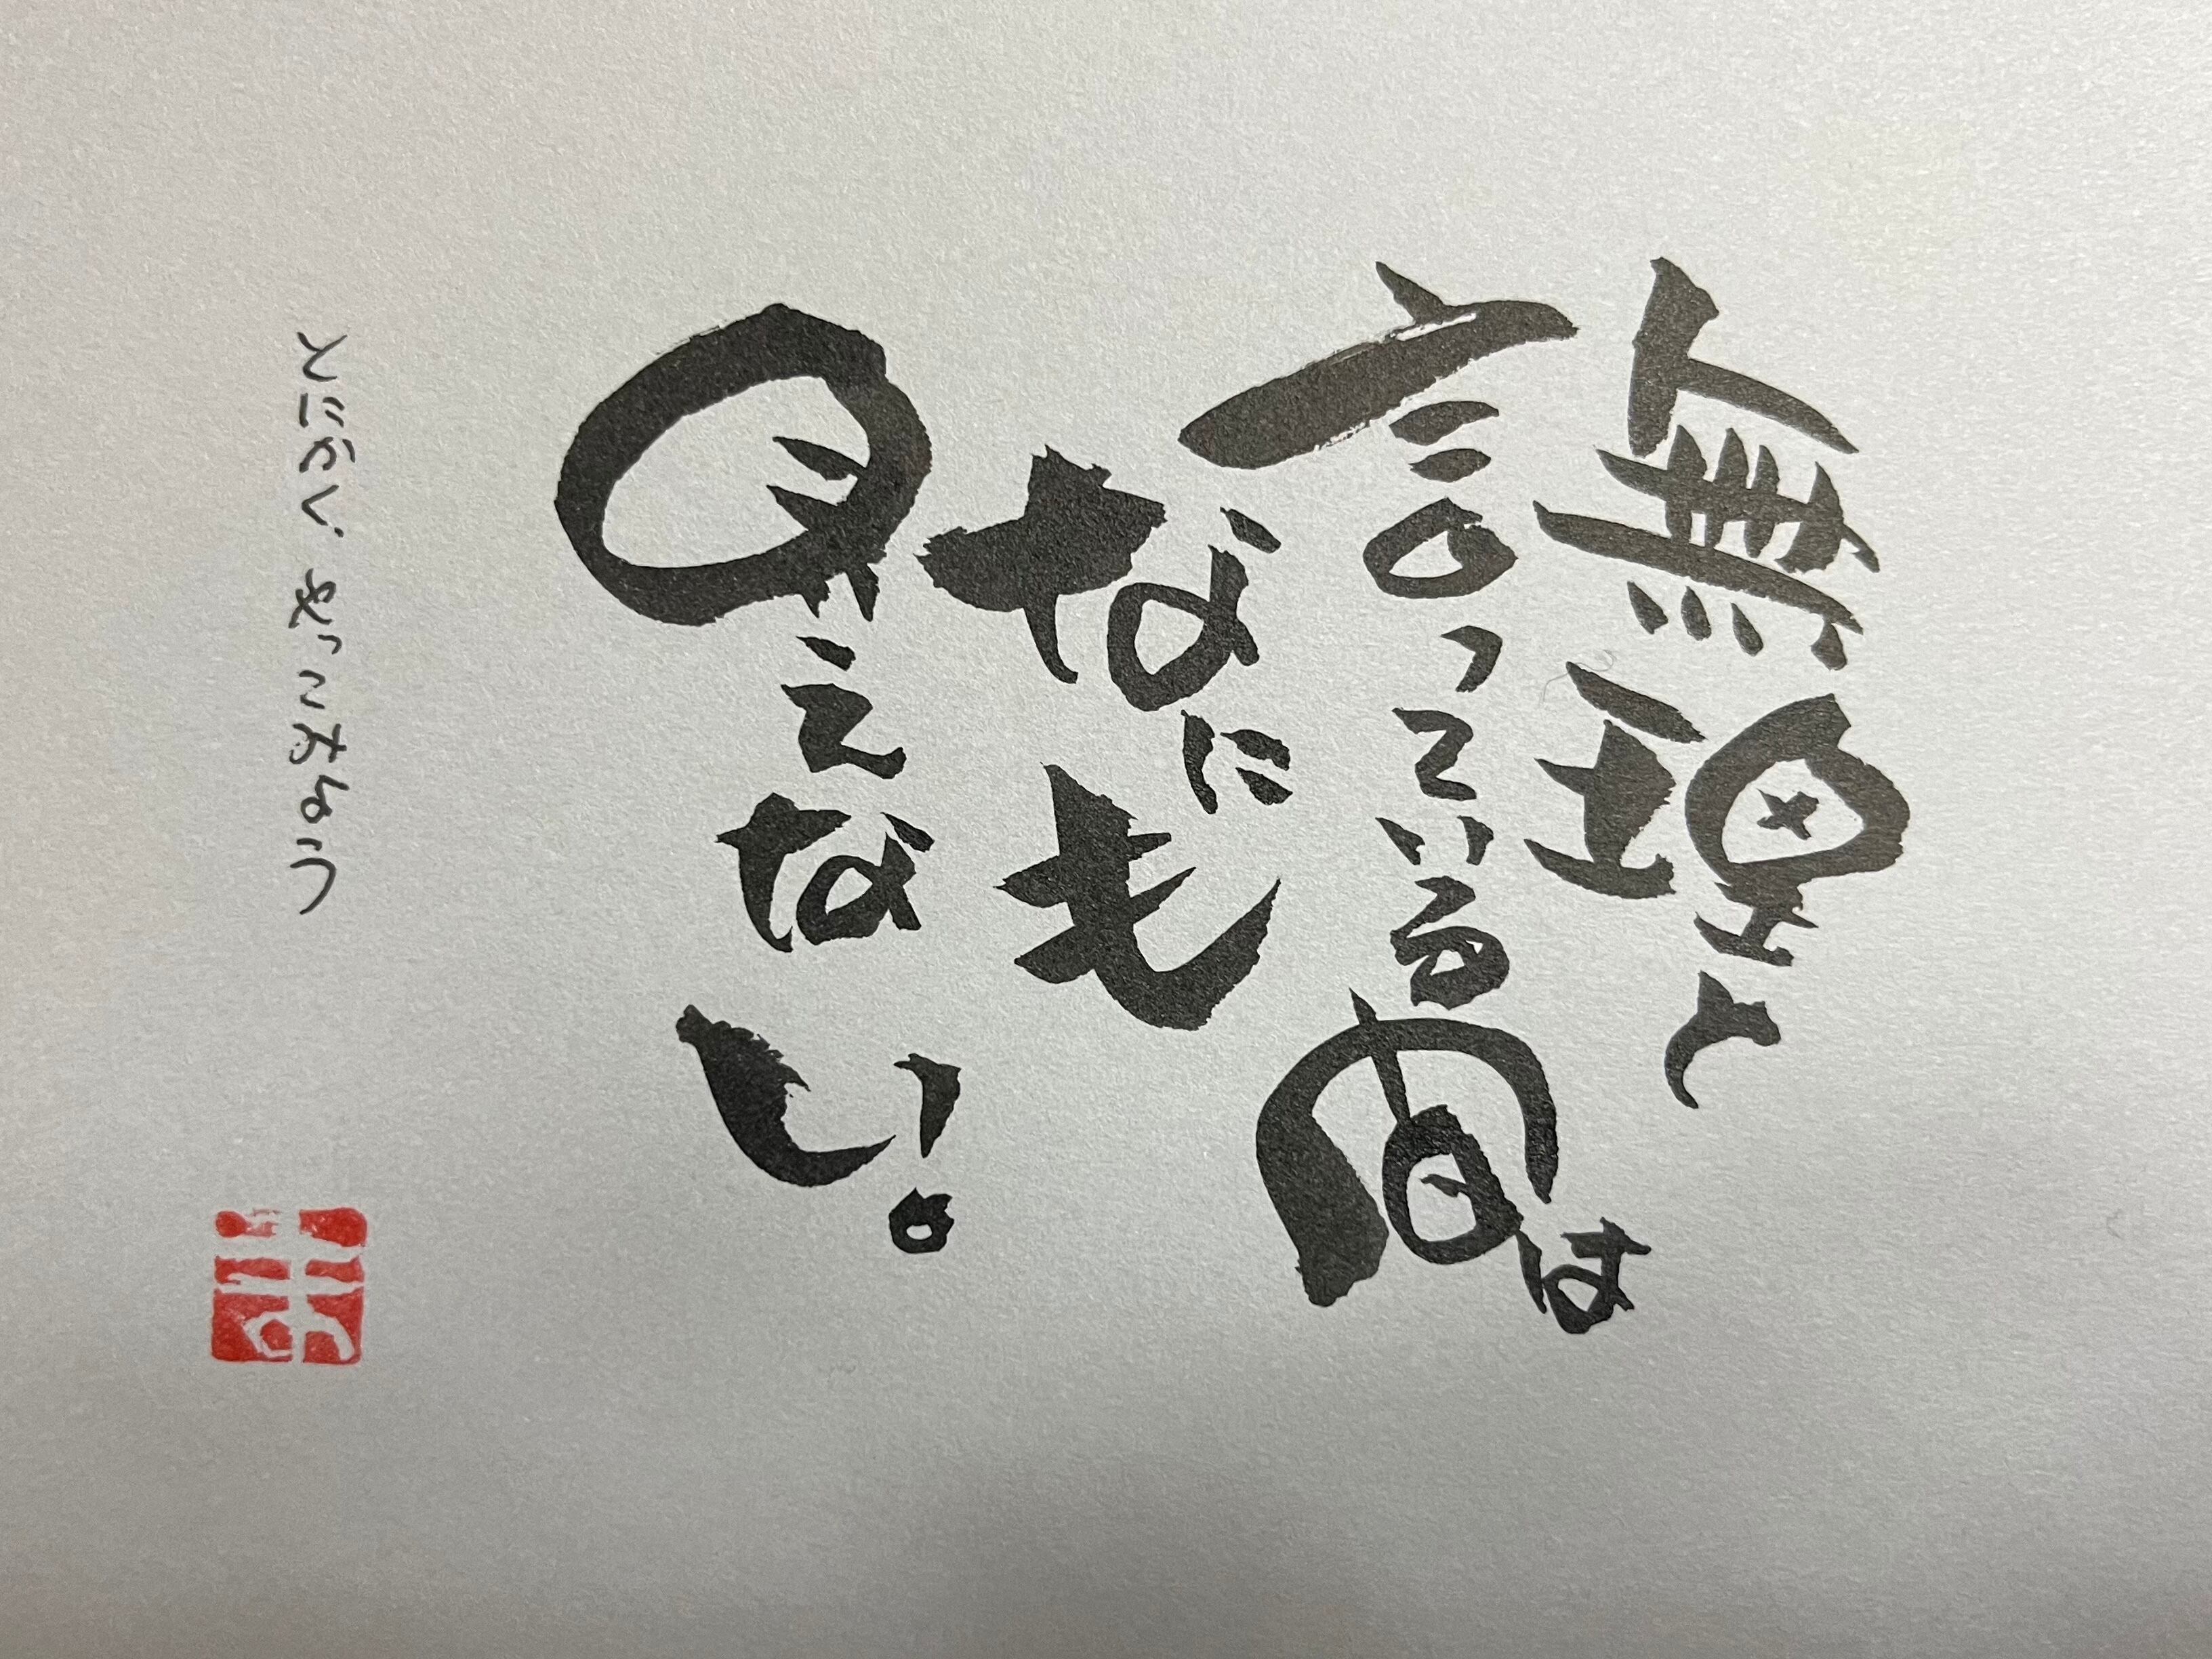 無理と
言っている間は
なにも
見えない。
とにかく、やってみよう